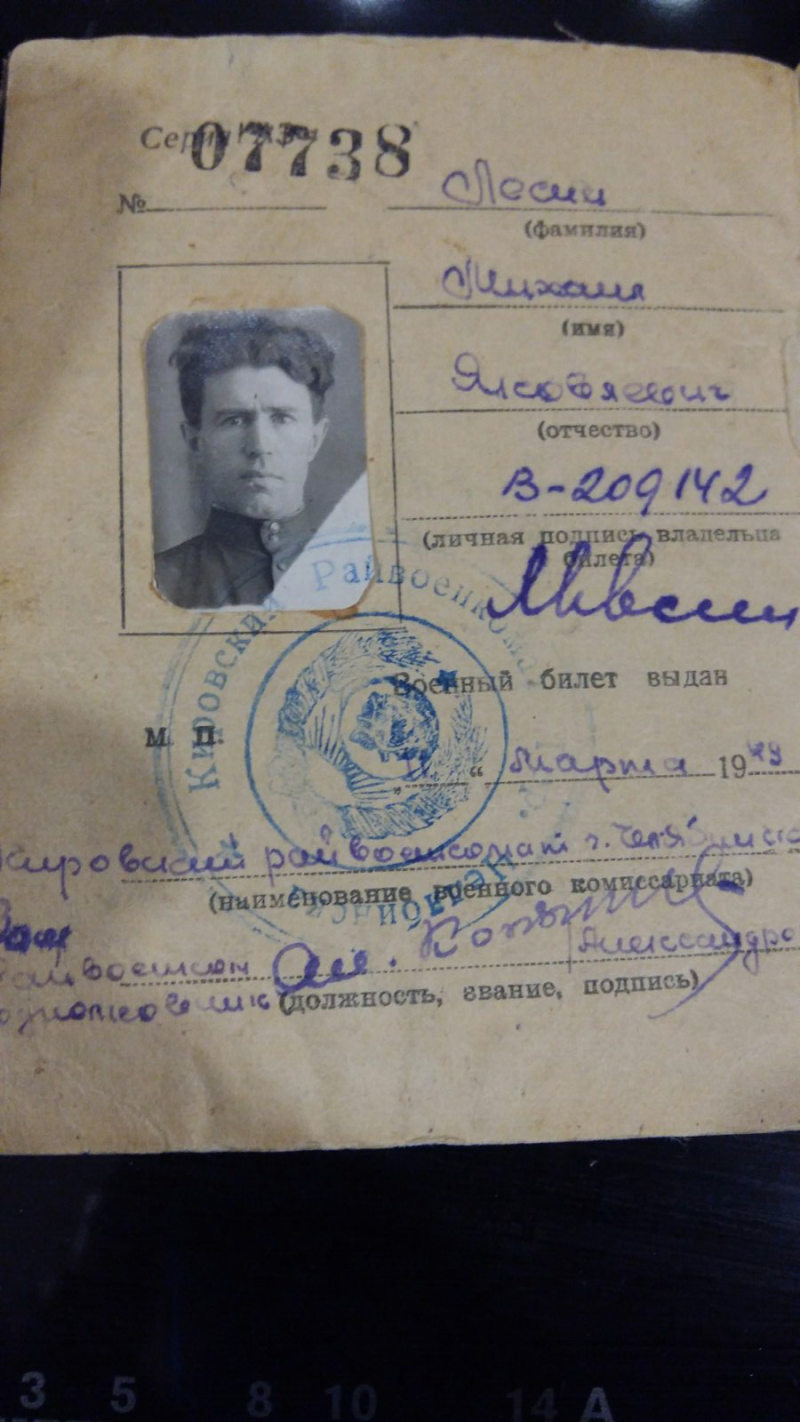 Серии
07738
№
Лесин
(фамилия)
Михаил
(имя)
Яковлевич
(отчество)
В-209142
(личная подпись владельца
билета)
Кировский Райвоенкомат
Военный билет выдан
М. П.
„ “ марта 1949
Кировский райвоенкомат г. Челябинска
(наименование военного комиссариата)
Райвоенком
(должность, звание, подпись)
3 5 8 10 14 A